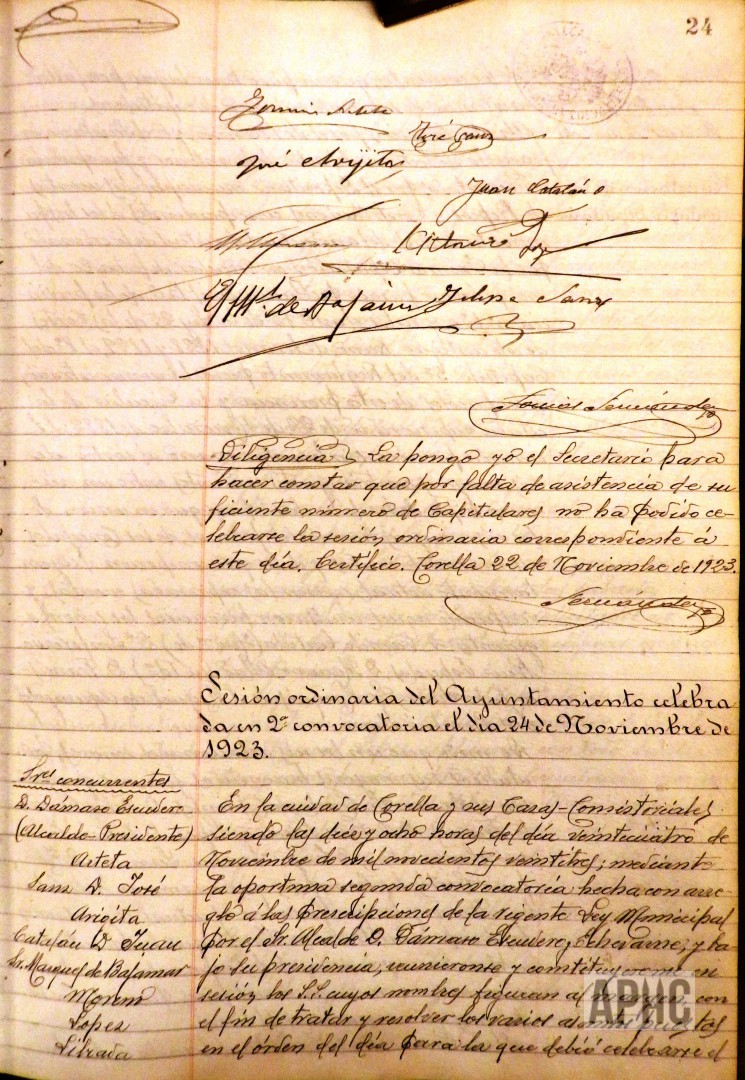 24
José Sanz
José Arigita
Juan Catalán
López
El M. de Bajamar Felipe Sanz
Diligencia La pongo yo el Secretario para
hacer constar que por falta de asistencia de su
ficiente número de Capitulares no ha podido ce-
lebrarse la sesión ordinaria correspondiente á
este día. Certifico. Corella 22 de Noviembre de 1923.
Sesión ordinaria del Ayuntamiento celebra
da en 2ª convocatoria el día 24 de Noviembre de
1923.
Sres concurrentes
D. Dámaso Escudero
(Alcalde-Presidente)
Arteta
Sanz D. José
Arigita
Catalán D. Juan
Sr. Marques de Bajamar
Moreno
Lopez
Librada
En la ciudad de Corella y sus Casas-Consistoriales,
siendo las diez y ocho horas del día veinticuatro de
Noviembre de mil novecientos veintitres; mediante
la oportuna segunda convocatoria hecha con arre-
glo á las prescripciones de la vigente Ley Municipal
por el Sr. Alcalde D. Dámaso Escudero y ba-
jo su presidencia, reunieronse y constituyeronse en
sesión los S.S. cuyos nombres figuran al margen con
el fin de tratar y resolver los varios asuntos puestos
en el órden del día para la que debió celebrarse el
APHC